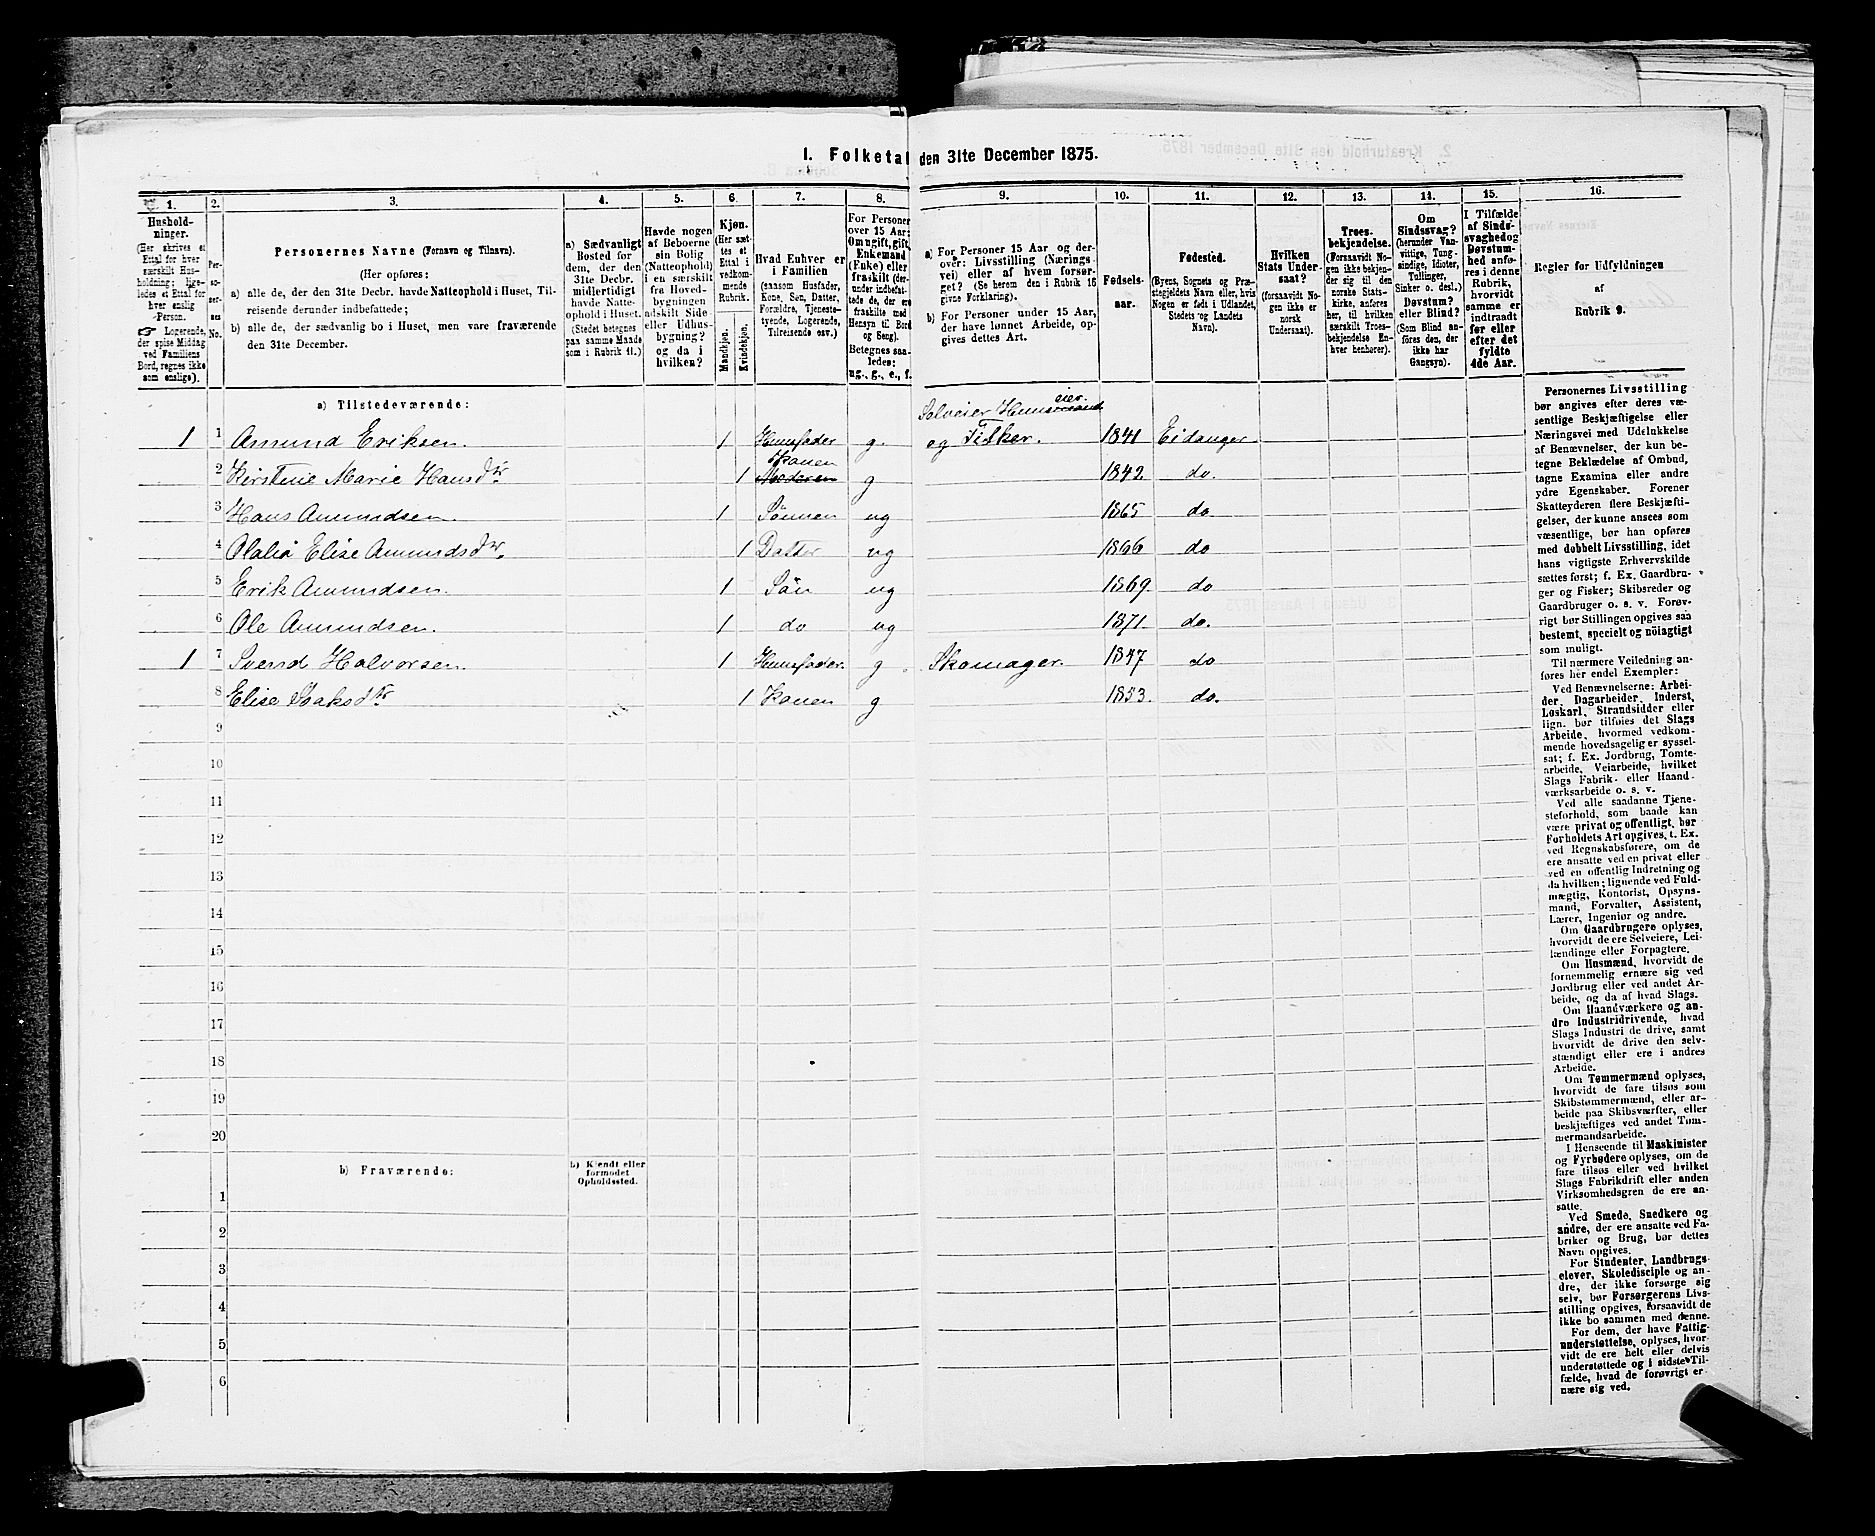 1. Folketal den 31te December 1875.
1.
Hushold-
ninger.
(Her skrives et
Ettal for hver
særskilt Hus-
holdning; lige-
ledes et Ettal for
hver enslig
Person.
☞ Logerende,
der spise Middag
ved Familiens
Bord, regnes ikke
som enslige).
2.
Per-
so-
ner-
nes
No.
3.
Personernes Navne (Fornavn og Tilnavn).
(Her opføres:
a) alle de, der den 31te Decbr. havde Natteophold i Huset, Til-
reisende derunder indbefattede;
b) alle de, der sædvanlig bo i Huset, men vare fraværende
den 31te December.
4.
a) Sædvanligt
Bosted for
dem, der den
31te Decbr.
midlertidigt
havde Natte-
ophold i Huset.
(Stedet betegnes
paa samme Maade
som i Rubrik 11.)
5.
Havde nogen
af Beboerne
sin Bolig
(Natteophold)
i en særskilt
fra Hoved-
bygningen
adskilt Side-
eller Udhus-
bygning?
og da i
hvilken?
6.
Kjøn.
(Her sæt-
tes et
Ettal i
vedkom-
mende
Rubrik.
Mandkjøn.
Kvindekjøn.
7.
Hvad Enhver er
i Familien
(saasom Husfader,
Kone, Søn, Datter,
Forældre, Tjeneste-
tyende, Logerende,
Tilreisende osv.)
8.
For Personer
over 15 Aar:
Om ugift, gift,
Enkemand
(Enke) eller
fraskilt (der-
under indbefat-
tede de, der ere
fraskilte med
Hensyn til Bord
og Seng).
Betegnes saa-
ledes:
ug., g., e., f.
9.
a) For Personer 15 Aar og der-
over: Livsstilling (Nærings-
vei) eller af hvem forsør-
get? (Se herom den i Rubrik 16
givne Forklaring).
b) For Personer under 15 Aar,
der have lønnet Arbeide, op-
gives dettes Art.
10.
Fødsels-
aar.
11.
Fødested.
(Byens, Sognets og Præ-
stegjeldets Navn eller, hvis
Nogen er født i Udlandet,
Stedets og Landets
Navn).
12.
Hvilken
Stats Under-
saat?
(forsaavidt No-
gen ikke er
norsk
Undersaat).
13.
Troes-
bekjendelse.
(Forsaavidt No-
gen ikke bekjen-
der sig til den
norske Stats-
kirke, anføres
her, til hvilken
særskilt Troes-
bekjendelse En-
hver henhører).
14.
Om
Sindssvag?
(herunder Van-
vittige, Tung-
sindige, Idioter,
Tullinger,
Sinker o. desl.)
Døvstum?
eller Blind?
(Som Blind an-
føres den, der
ikke har
Gangsyn).
15.
I Tilfælde
af Sinds-
svaghed og
Døvstum-
hed anfø-
res i denne
Rubrik,
hvorvidt
samme er
indtraadt
før eller
efter det
fyldte
4de Aar.
16.
Regler for Udfyldningen
af
Rubrik 9.
a) Tilstedeværende:
Selveier Huus eier
1 1 Amund Eriksen. 1 Huusfader g. og Fisker. 1841 Eidanger
Konen
2 Kirstine Marie Hansdtr 1 Moderen g 1842. do.
3 Hans Amundsen. 1 Sønnen ug 1865 do
4 Olalia Elise Amundsdtr. 1 Datter ug 1866 do
5 Erik Amundsen. 1 Søn ug 1869. do
6 Ole Amundsen. 1 do ug 1871. do.
1 7 Svend Halvorsen. 1 Huusfader. g Skomager. 1847 do
8 Elise Isaksdtr 1 Konen g 1853. do.
9
10
11
12
13
14
15
16
17
18
19
20
b) Fraværende:
b) Kjendt eller
formodet
Opholdssted.
1
2
3
4
5
6
Personernes Livsstilling
bør angives efter deres væ-
sentlige Beskjæftigelse eller
Næringsvei med Udelukkelse
af Benævnelser, der kun be-
tegne Beklædelse af Ombud,
tagne Examina eller andre
ydre Egenskaber. Forener
Skatteyderen flere Beskjæfti-
gelser, der kunne ansees som
væsentlige, bør han opføres
med dobbelt Livsstilling, idet
hans vigtigste Erhvervskilde
sættes først; f. Ex. Gaardbru-
ger og Fisker; Skibsreder og
Gaardbruger o. s. v. Forøv-
rigt bør Stillingen opgives saa
bestemt, specielt og nöiagtigt
som muligt.
Til nærmere Veiledning an-
føres her endel Exempler:
Ved Benævnelserne: Arbei-
der, Dagarbeider, Inderst,
Løskarl, Strandsidder eller
lign. bør tilføies det Slags
Arbeide, hvormed vedkom-
mende hovedsagelig er syssel-
sat; f. Ex. Jordbrug, Tomte-
arbeide, Veiarbeide, hvilket
Slags Fabrik- eller Haand-
værksarbeide o. s. v.
Ved alle saadanne Tjene-
steforhold, som baade kan
være privat og offentligt, bør
Forholdets Art opgives, t. Ex.
ved Regnskabsførere, om de
ere ansatte ved en privat eller
ved en offentlig Indretning og
da hvilken; lignende ved Fuld-
mægtig, Kontorist, Opsyns-
mand, Forvalter, Assistent,
Lærer, Ingeniør og andre.
Om Gaardbrugere oplyses,
hvorvidt de ere Selveiere, Lei-
lændinge eller Forpagtere.
Om Husmænd, hvorvidt de
fornemmelig ernære sig ved
Jordbrug eller ved andet Ar-
beide, og da af hvad Slags.
Om Haandværkere og an-
dre Industridrivende, hvad
Slags Industri de drive, samt
hvorvidt de drive den selv-
stændigt eller ere i andres
Arbeide.
Om Tømmermænd oplyses,
hvorvidt de fare tilsøs som
Skibstømmermænd, eller ar-
beide paa Skibsværfter, eller
beskjæftiges ved andet Tøm-
mermandsarbeide.
I Henseende til Maskinister
og Fyrbødere oplyses, om de
fare tilsøs eller ved hvilket
Slags Fabrikdrift eller anden
Virksomhedsgren de ere an-
satte.
Ved Smede, Snedkere og
andre, der ere ansatte ved Fa-
briker og Brug, bør dettes
Navn opgives.
For Studenter, Landbrugs-
elever, Skoledisciple og an-
dre, der ikke forsørge sig
selv, bør Forsørgerens Livs-
stilling opgives, forsaavidt de
ikke bo sammen med denne.
For dem, der have Fattig-
understøttelse, oplyses, hvor-
vidt de ere helt eller delvis
understøttede og i sidste Til-
fælde, hvad de forøvrigt er-
nære sig ved.